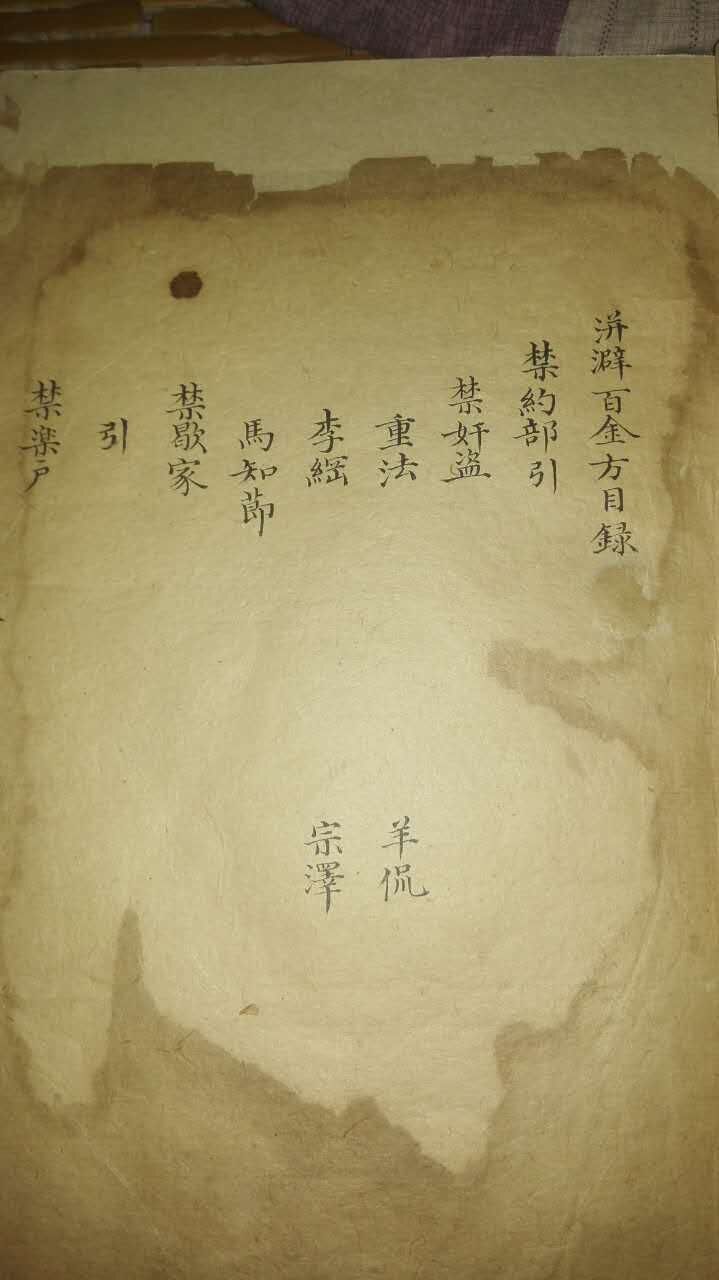 洴澼百金方目録
禁約部引
禁奸盗
重法 羊侃
李綱 宗澤
馬知節
禁歇家
引
禁楽戸